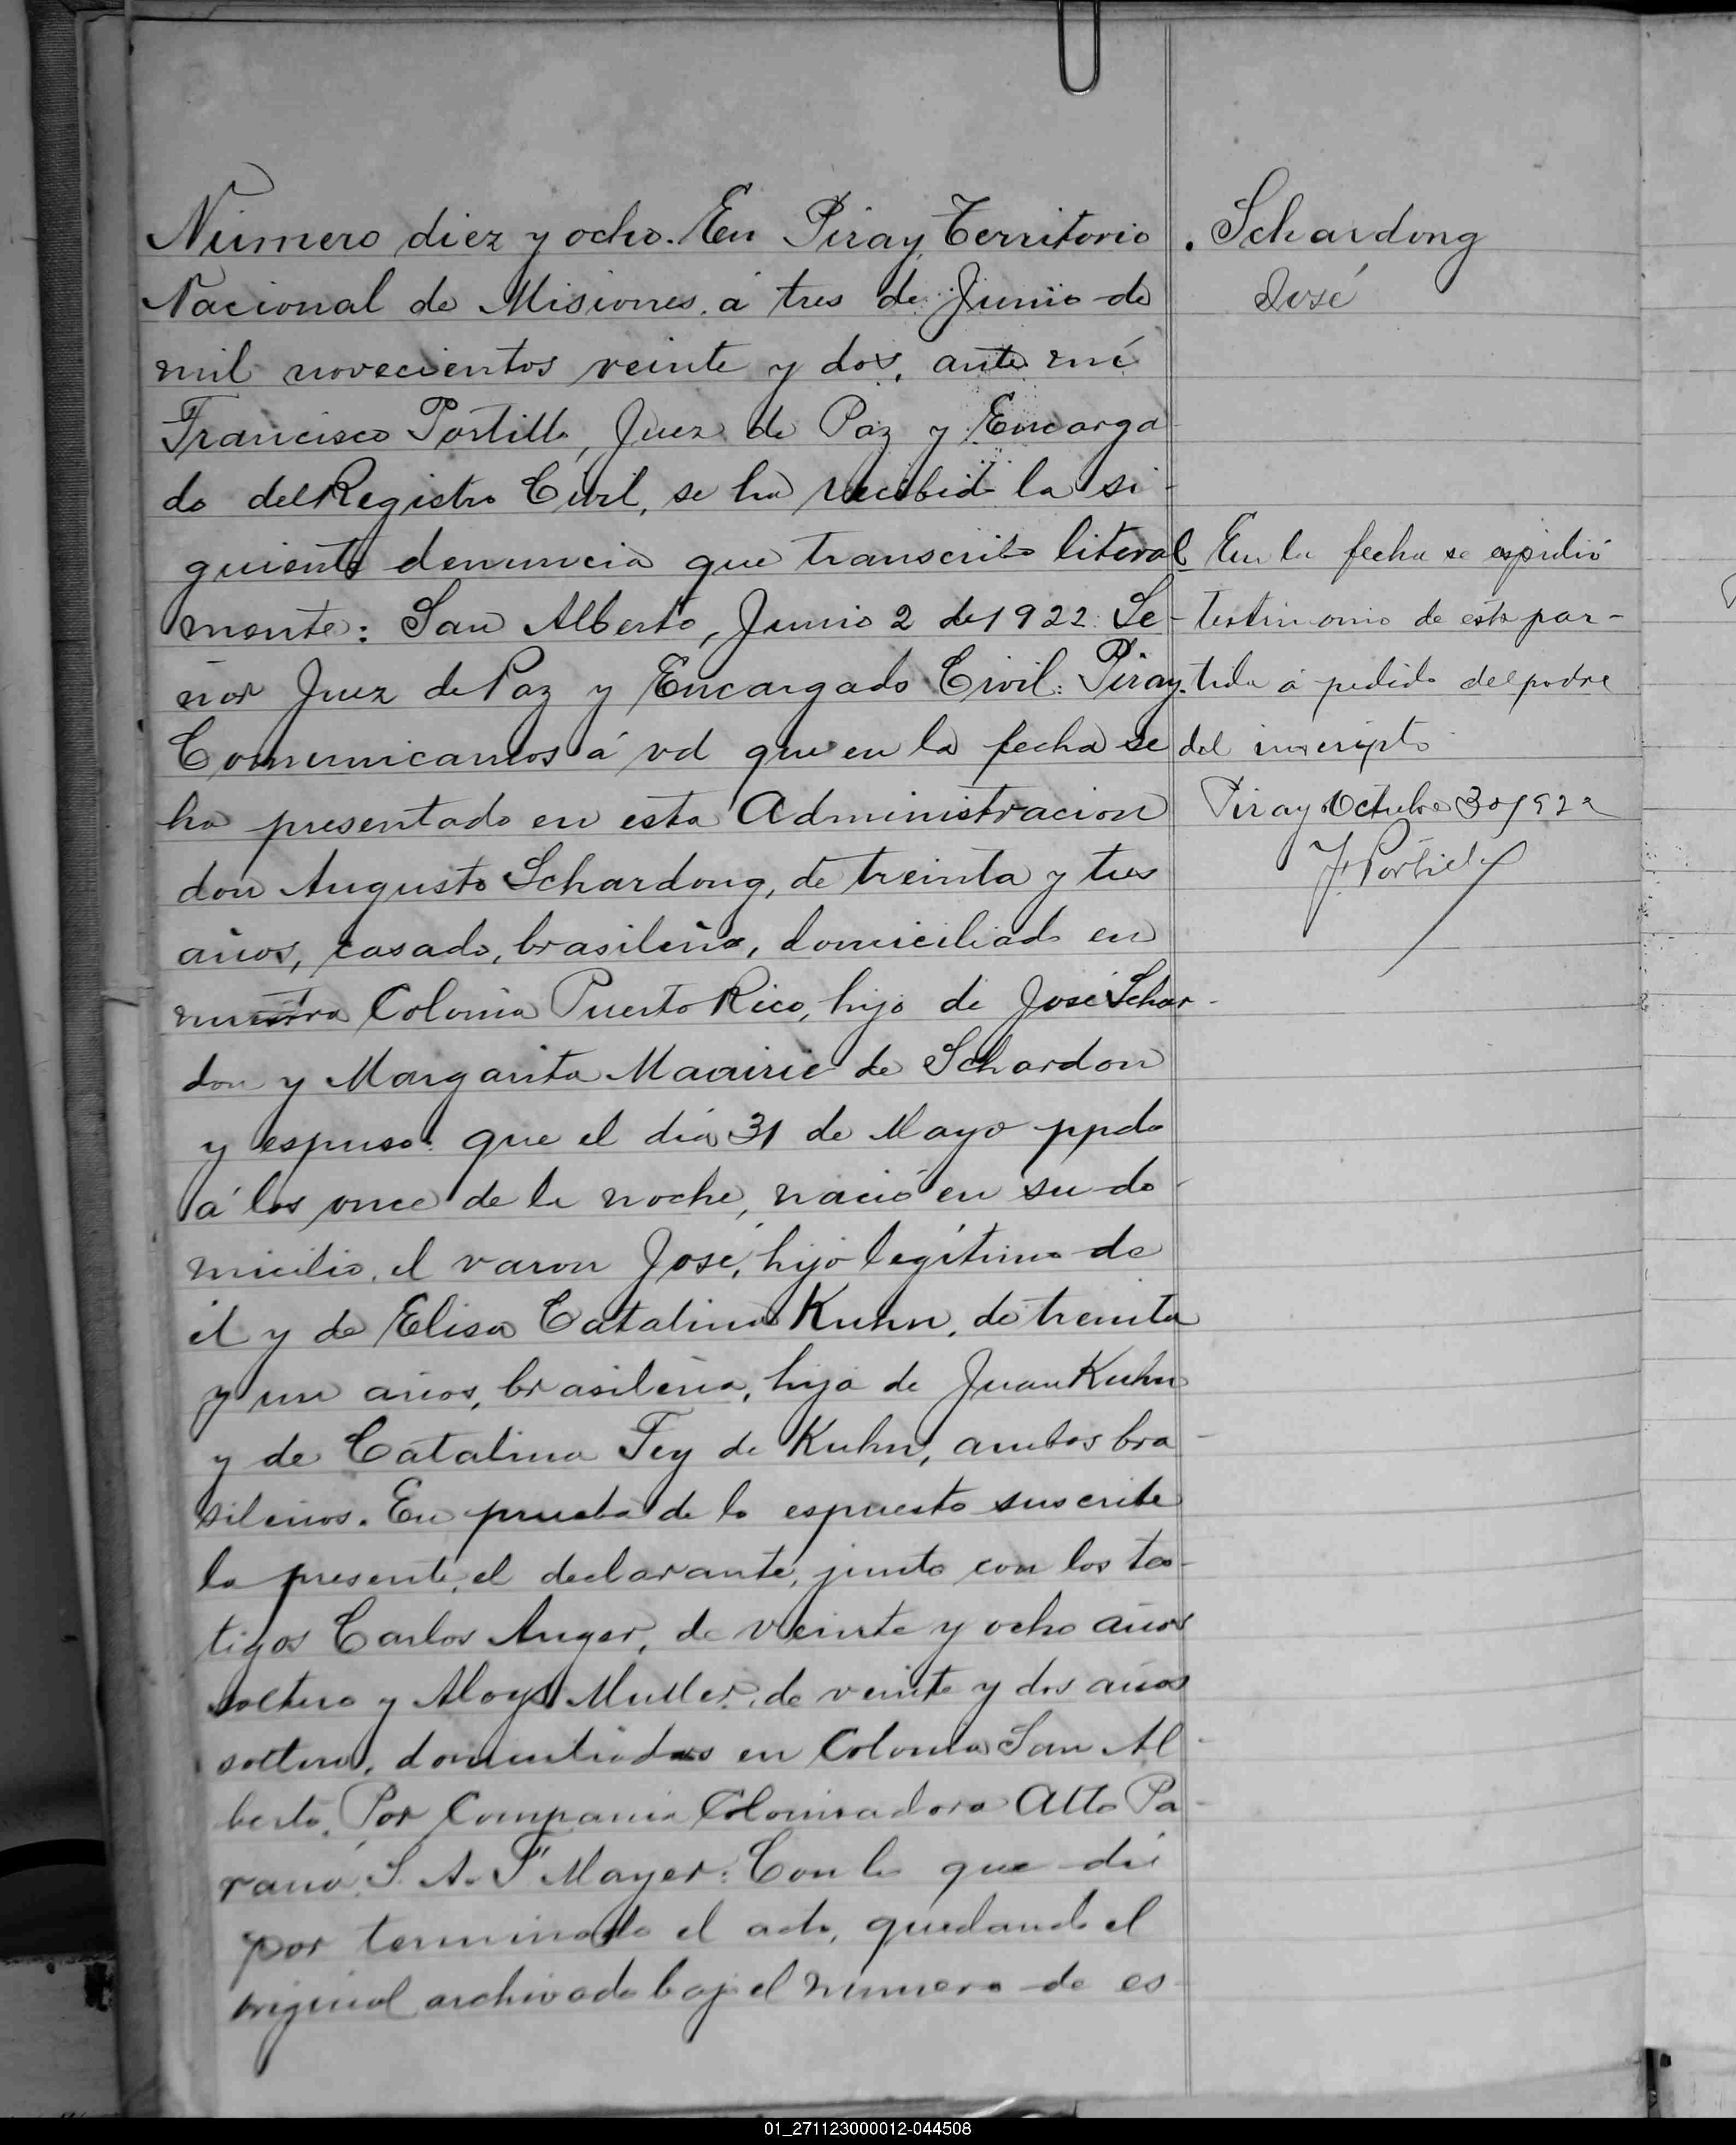 Número diez y ocho. En Piray, Territorio
Nacional de Misiones, á tres de Junio de
mil novecientos veinte y dos, ante mí
Francisco Portillo, Juez de Paz y Encarga
do del Registro Civil, se ha recibido la si-
guiente denuncia que transcribo literal
mente: San Alberto, Junio 2 de 1922. Se-
ñor Juez de Paz y Encargado Civil: Piray.
Comunicamos á vd que en la fecha se
ha presentado en esta Administracion
don Augusto Schardong, de treinta y tres
años, casado, brasileño, domiciliado en
nuestra Colonia Puerto Rico, hijo de José Schar-
don y Margarita de Schardon
y espuso: que el dia 31 de Mayo ppdo
á las once de la noche, nació en su do-
micilio, el varon José, hijo legítimo de
él y de Elisa Catalina Kuhn, de treinta
y un años, brasileña, hija de Juan Kuhn
y de Catalina Fey de Kuhn, ambos bra-
sileños. En prueba de lo espuesto suscribe
la presente, el declarante, junto con los tes-
tigos Carlos Anger, de veinte y ocho años
soltero y Aloys Muller, de veinte y dos años
soltero, domiciliados en Colonia San Al-
berto. Por Compania Colonisadora Alto Pa-
raná S. A. F Mayer: Con lo que dí
por terminado el acto, quedando el
original archivado bajo el número de es-
Schardong
José
En la fecha se espidió
testimonio de esta par-
tida á pedido del padre
del inscripto
Piray Octubre 30/922
F. Portillo
01_271123000012-044508